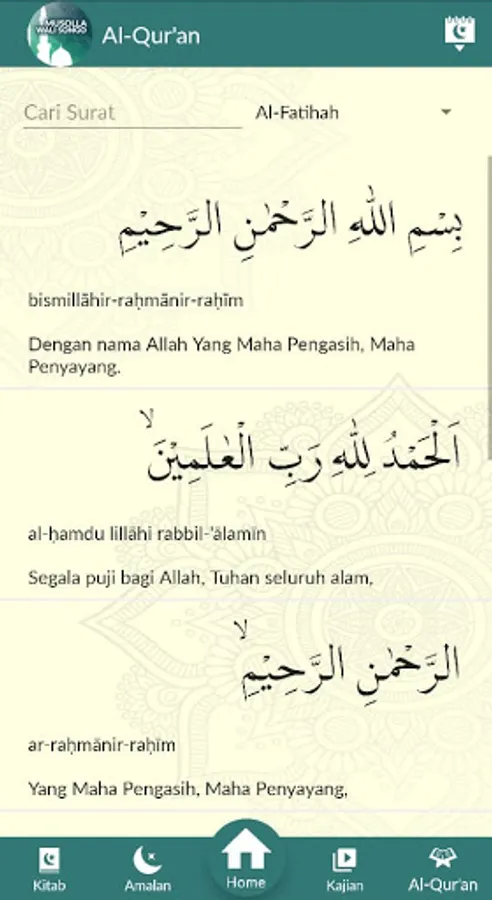 MUSOLLA
WALI SONGO
Al-Qur'an
Cari Surat
Al-Fatihah
بِسْمِ اللّٰهِ الرَّحْمٰنِ الرَّحِيْمِ
bismillāhir-raḥmānir-raḥīm
Dengan nama Allah Yang Maha Pengasih, Maha
Penyayang.
اَلْحَمْدُ لِلّٰهِ رَبِّ الْعٰلَمِيْنَۙ
al-ḥamdu lillāhi rabbil-'ālamīn
Segala puji bagi Allah, Tuhan seluruh alam,
الرَّحْمٰنِ الرَّحِيْمِۙ
ar-raḥmānir-raḥīm
Yang Maha Pengasih, Maha Penyayang,
Kitab
Amalan
Home
Kajian
Al-Qur'an